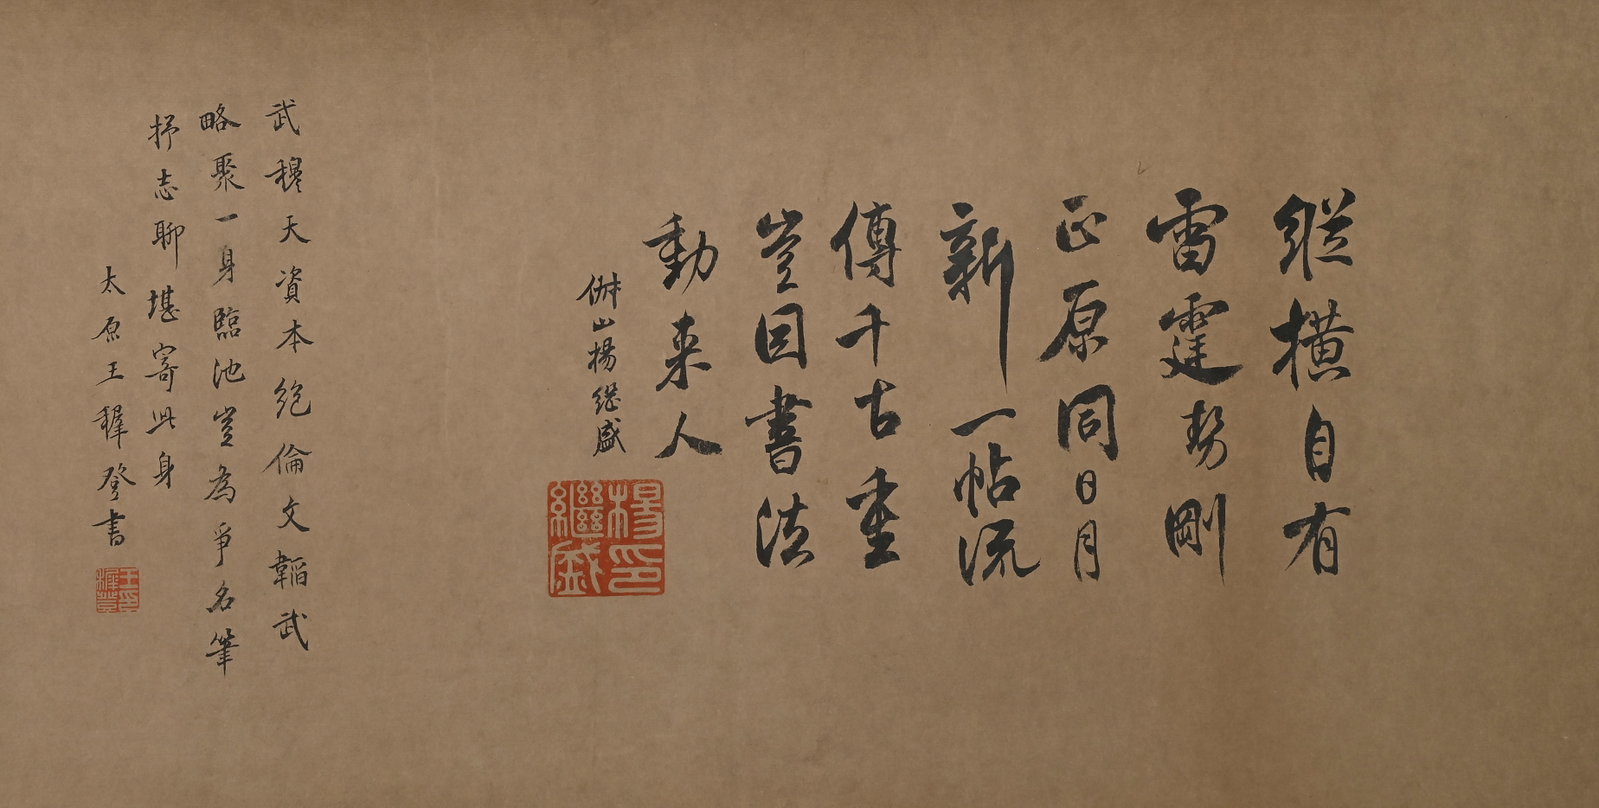 縱橫自有
雷霆勢剛
正原同日月
新一帖流
傳千古重
豈因書法
動來人
楊繼盛
楊繼盛印
武穆天資本絕倫文韜武
略聚一身臨池豈為爭名筆
抒志聊堪寄此身
太原王穉登書
王穉登印